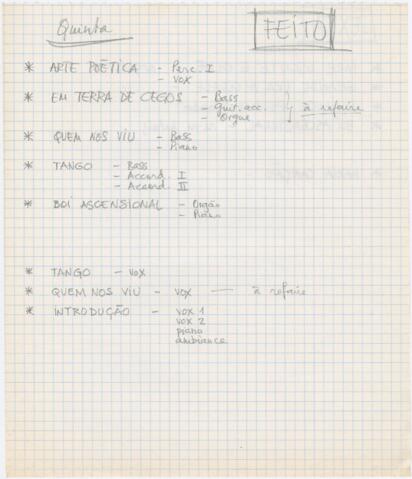 Quinta
FEITO
* ARTE POÉTICA - Perc. I
- vox
* EM TERRA DE CEGOS - Bass
- Guit. acc. à refaire
- Orgue
* QUEM NOS VIU - Bass
- Piano
* TANGO - Bass
- Accord. I
- Accord. II
* BOI ASCENSIONAL - Orgão
- Piano
* TANGO - vox
* QUEM NOS VIU - vox — à refaire
* INTRODUÇÃO - vox 1
vox 2
piano
ambiance